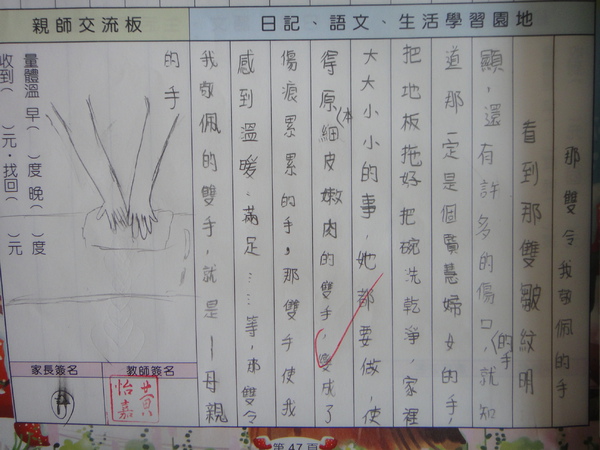 日記、語文、生活學習園地
那雙令我敬佩的手
看到那雙皺紋明
顯,還有許多的傷口的手,就知
道那一定是個賢慧婦女的手,
把地板拖好把碗洗乾淨,家裡
大大小小的事,她都要做,使
得原本細皮嫩肉的雙手,變成了
傷痕累累的手,那雙手使我
感到溫暖、滿足……等,雙令
我敬佩的雙手,就是—母親
的手
親師交流板
量體溫 早( )度 晚( )度
收到( )元‧找回( )元
教師簽名
黃怡嘉
家長簽名
第47頁